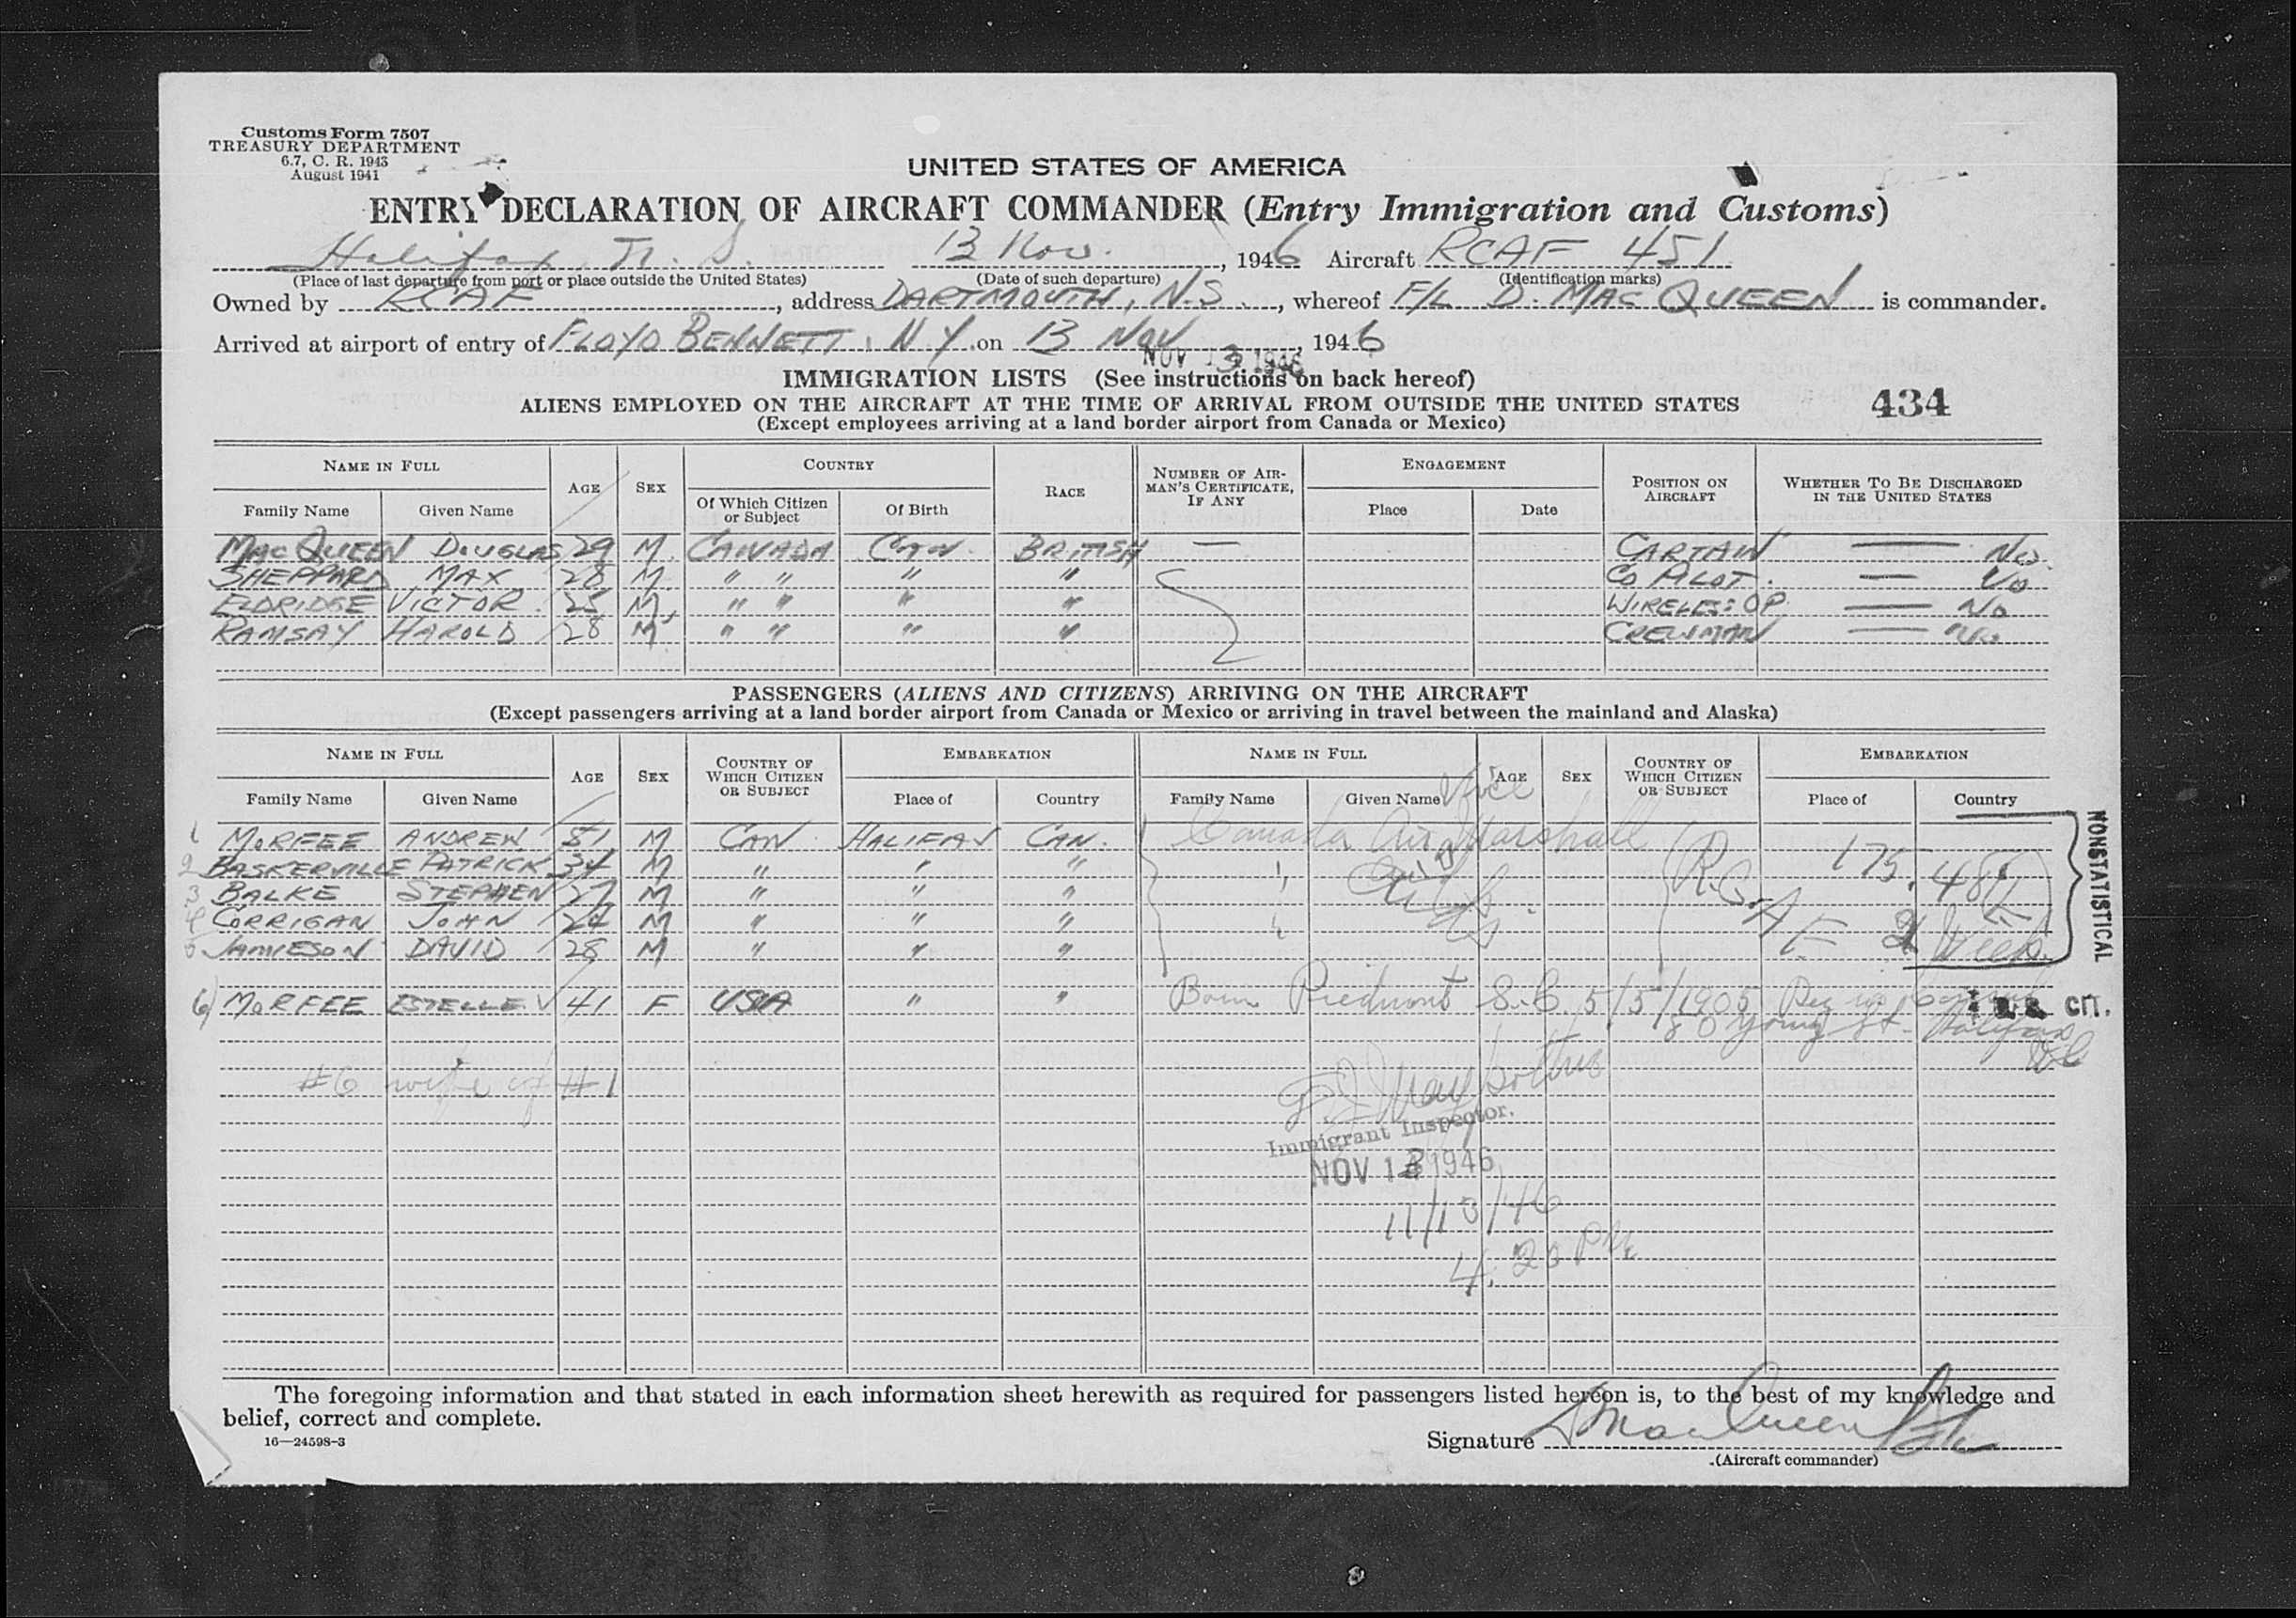 Customs Form 7507
TREASURY DEPARTMENT
6.7, C. R. 1943
August 1941
UNITED STATES OF AMERICA
ENTRY DECLARATION OF AIRCRAFT COMMANDER (Entry Immigration and Customs)
Halifax N. S. 13 Nov. , 1946 Aircraft RCAF 451
(Place of last departure from port or place outside the United States) (Date of such departure) (Identification marks)
Owned by RCAF , address DARTMOUTH, N.S. , whereof F/L D. MACQUEEN is commander.
Arrived at airport of entry of FLOYD BENNETT, N.Y. on 13 NOV , 1946
NOV 13 1946
IMMIGRATION LISTS (See instructions on back hereof)
ALIENS EMPLOYED ON THE AIRCRAFT AT THE TIME OF ARRIVAL FROM OUTSIDE THE UNITED STATES 434
(Except employees arriving at a land border airport from Canada or Mexico)
NAME IN FULL AGE SEX COUNTRY RACE NUMBER OF AIRMAN'S CERTIFICATE, IF ANY ENGAGEMENT POSITION ON AIRCRAFT WHETHER TO BE DISCHARGED IN THE UNITED STATES
Family Name Given Name Of Which Citizen or Subject Of Birth Place Date
MACQUEEN DOUGLAS 29 M. CANADA CAN. BRITISH — CAPTAIN — No.
SHEPPARD MAX 28 M " " " " CO PILOT. — No
ELDRIDGE VICTOR. 25 M, " " " " WIRELESS OP. — No
RAMSAY HAROLD 28 M " " " " CREWMAN — No
PASSENGERS (ALIENS AND CITIZENS) ARRIVING ON THE AIRCRAFT
(Except passengers arriving at a land border airport from Canada or Mexico or arriving in travel between the mainland and Alaska)
NAME IN FULL AGE SEX COUNTRY OF WHICH CITIZEN OR SUBJECT EMBARKATION NAME IN FULL AGE SEX COUNTRY OF WHICH CITIZEN OR SUBJECT EMBARKATION
Family Name Given Name Place of Country Family Name Given Name Place of Country
Vice
1 MORFEE ANDREW 51 M CAN HALIFAX CAN. Canada Air Marshall
2 BASKERVILLE PATRICK 34 M " " " R.C.A.F. 175.
3 BALKE STEPHEN 27 M " " "
4 CORRIGAN JOHN 24 M " " "
5 JAMIESON DAVID 28 M " " " 2 Weeks.
NONSTATISTICAL
6) MORFEE ESTELLE 41 F USA " " Born Piedmont S.C. 5/5/1905 CIT.
80 Young St. Halifax
#6 wife of #1
Immigrant Inspector.
NOV 13 1946
11/13/46
4:20 PM
The foregoing information and that stated in each information sheet herewith as required for passengers listed hereon is, to the best of my knowledge and
belief, correct and complete.
16—24598-3
Signature D MacQueen F/L
(Aircraft commander)